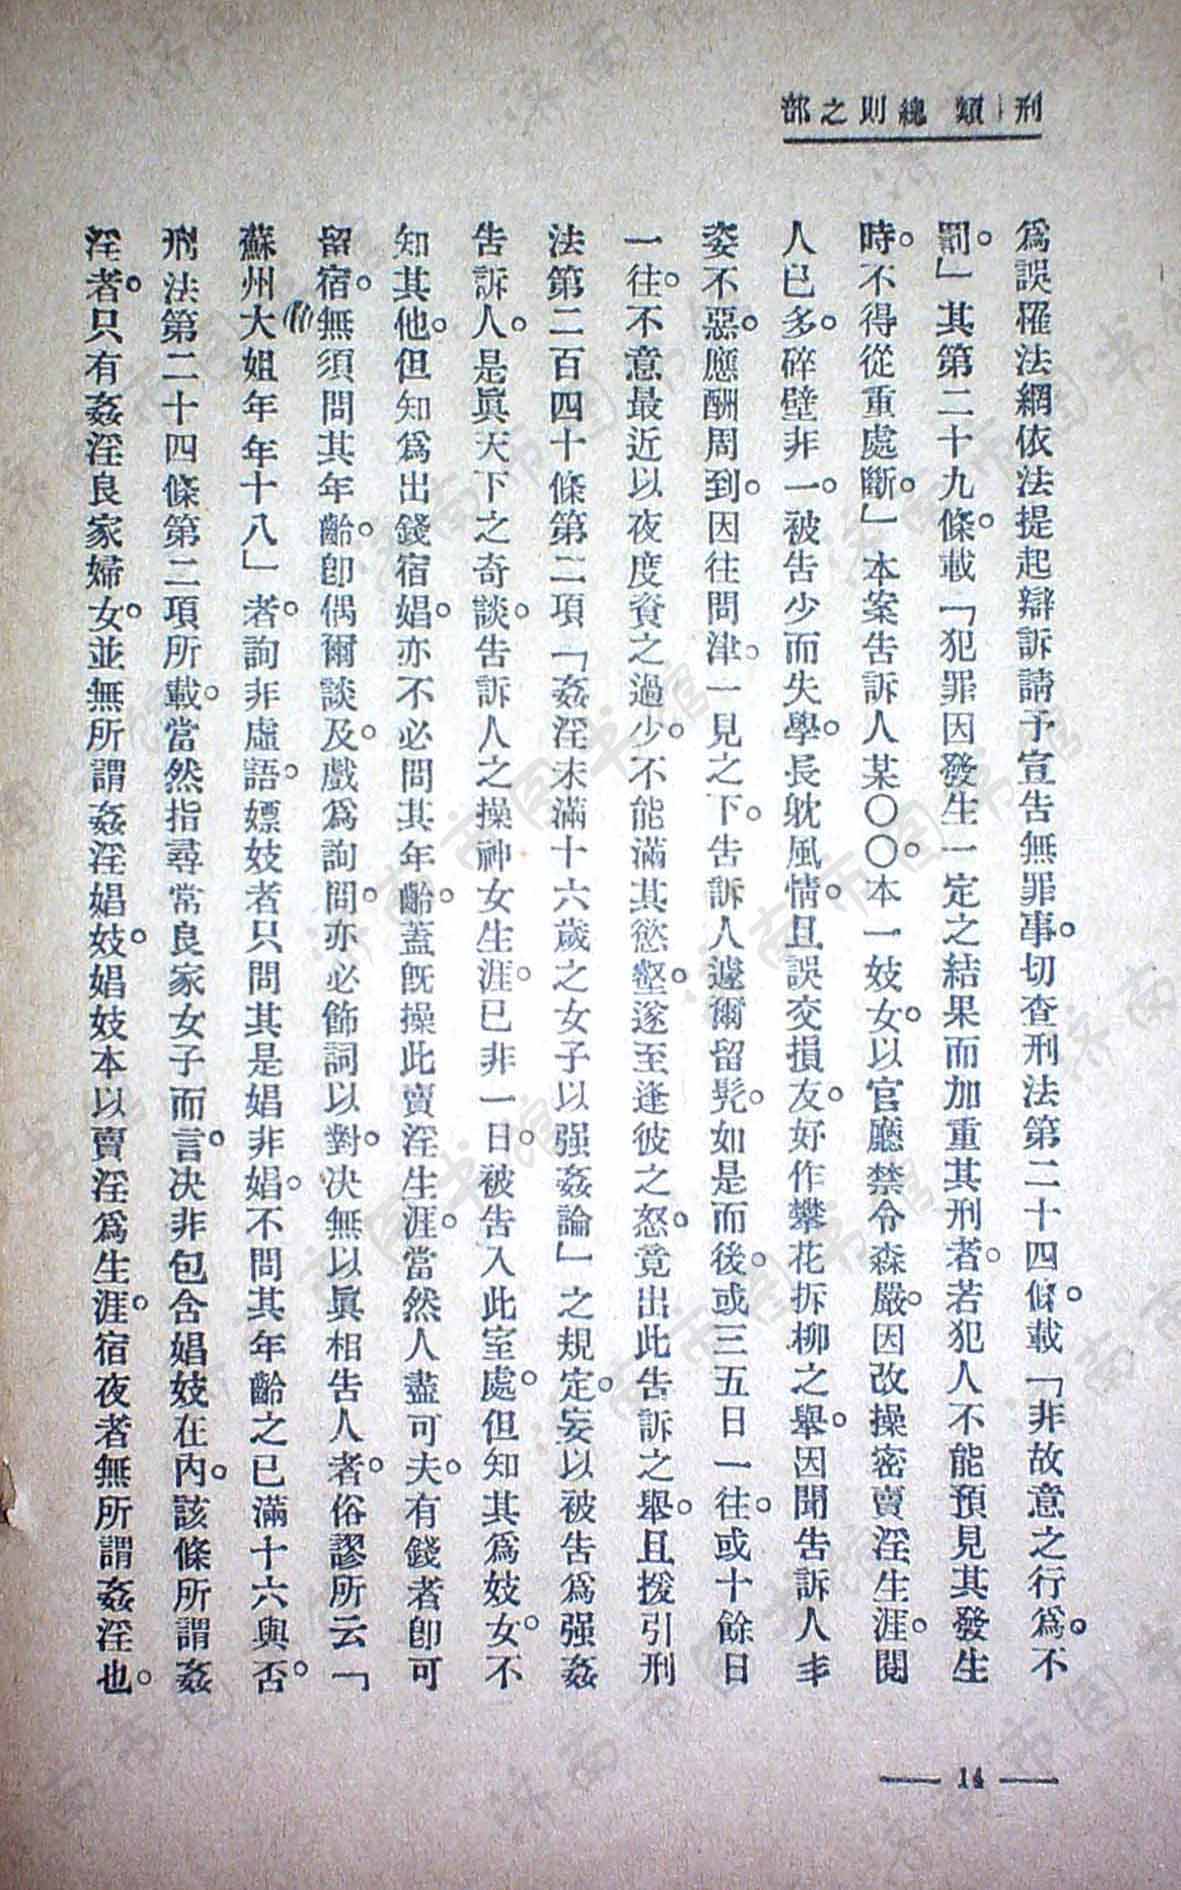 刑類總則之部
爲誤罹法網依法提起辯訴請予宣告無罪事。切查刑法第二十四條。載「非故意之行爲。不
罰。」其第二十九條。載「犯罪因發生一定之結果而加重其刑者。若犯人不能預見其發生
時。不得從重處斷。」本案告訴人某〇〇。本一妓女。以官廳禁令森嚴。因改操密賣淫生涯。閱
人已多。碎璧非一。被告少而失學。長躭風情。且誤交損友。好作攀花拆柳之舉。因聞告訴人丰
姿不惡。應酬周到。因往問津。一見之下。告訴人遽爾留髡。如是而後。或三五日一往。或十餘日
一往。不意最近以夜度資之過少。不能滿其慾壑。遂至逢彼之怒。竟出此告訴之舉。且援引刑
法第二百四十條第二項「姦淫未滿十六歲之女子以强姦論」之規定。妄以被告爲强姦
告訴人。是眞天下之奇談。告訴人之操神女生涯。已非一日。被告入此室處。但知其爲妓女。不
知其他。但知爲出錢宿娼。亦不必問其年齡。蓋既操此賣淫生涯。當然人盡可夫。有錢者卽可
留宿。無須問其年齡。卽偶爾談及。戲爲詢問。亦必飾詞以對。决無以眞相告人者。俗謬所云「
蘇州大姐年年十八」者。詢非虛語。嫖妓者只問其是娼非娼。不問其年齡之已滿十六與否。
刑法第二十四條第二項所載。當然指尋常良家女子而言。决非包含娼妓在內。該條所謂姦
淫者。只有姦淫良家婦女。並無所謂姦淫娼妓。娼妓本以賣淫爲生涯。宿夜者無所謂姦淫也。
— 14 —
济南市图书馆